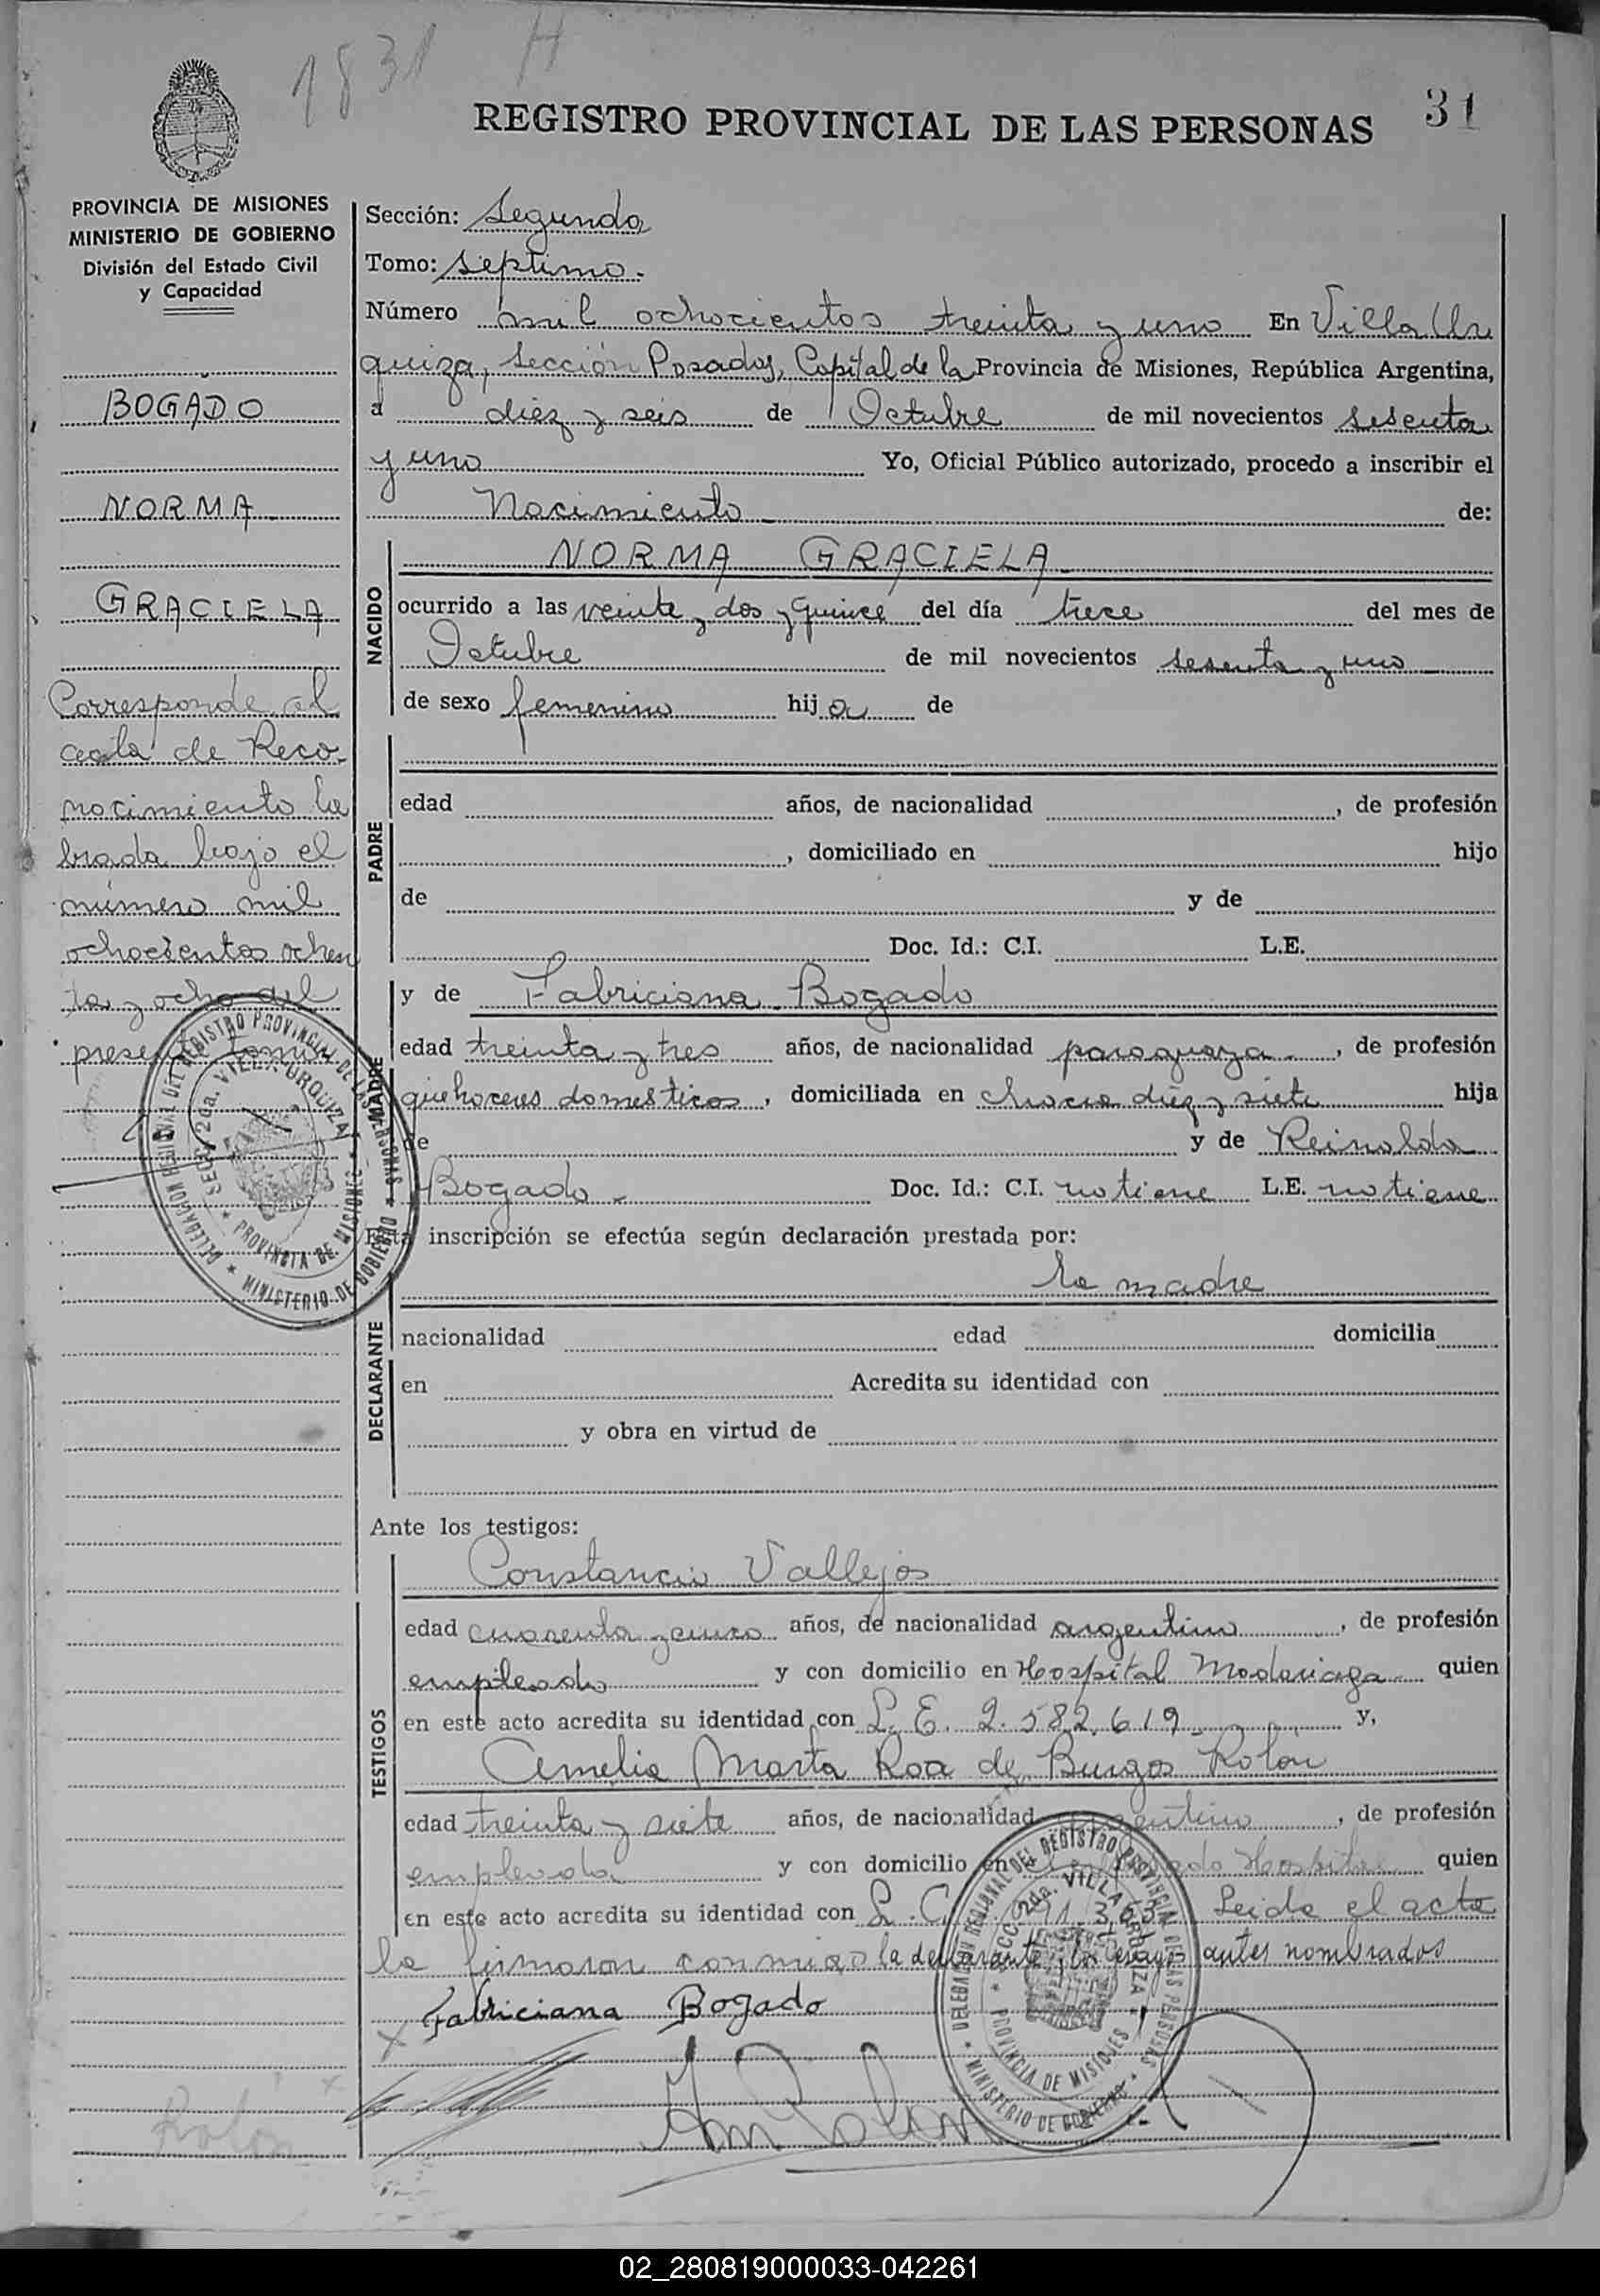 1831 H
31
REGISTRO PROVINCIAL DE LAS PERSONAS
PROVINCIA DE MISIONES
MINISTERIO DE GOBIERNO
División del Estado Civil
y Capacidad
BOGADO
NORMA
GRACIELA
Corresponde al
acta de Reco-
nocimiento la
brada bajo el
número mil
ochocientos ochen
ta y ocho del
presente tomo
Sección: Segunda
Tomo: Septimo.
Número mil ochocientos treinta y uno En Villa Ur
quiza, Sección Posadas, Capital de la Provincia de Misiones, República Argentina,
a diez y seis de Octubre de mil novecientos sesenta
y uno Yo, Oficial Público autorizado, procedo a inscribir el
Nacimiento de:
NACIDO
NORMA GRACIELA
ocurrido a las veinte y dos y quince del día trece del mes de
Octubre de mil novecientos sesenta y uno
de sexo femenino hij a de
PADRE
edad años, de nacionalidad , de profesión
, domiciliado en hijo
de y de
Doc. Id.: C.I. L.E.
MADRE
y de Fabriciana Bogado
edad treinta y tres años, de nacionalidad paraguaya , de profesión
quehaceres domesticos , domiciliada en chacra diez y siete hija
de y de Reinaldo
Bogado Doc. Id.: C.I. no tiene L.E. no tiene
Esta inscripción se efectúa según declaración prestada por:
la madre
DECLARANTE
nacionalidad edad domicilia
en Acredita su identidad con
y obra en virtud de
Ante los testigos:
TESTIGOS
Constancio Vallejos
edad cuarenta y cinco años, de nacionalidad argentino , de profesión
empleado y con domicilio en Hospital Madariaga quien
en este acto acredita su identidad con L. E. 2.582.619 y,
Amelia Marta Roa de Burgos Rolon
edad treinta y siete años, de nacionalidad argentino , de profesión
empleada y con domicilio en Hospital quien
en este acto acredita su identidad con L. C. Leida el acta
la firmaron conmigo la declarante y los testigos antes nombrados
Fabriciana Bogado
Rolon
DELEGACION REGIONAL DEL REGISTRO PROVINCIAL DE LAS PERSONAS
SECC. 2da. VILLA URQUIZA
PROVINCIA DE MISIONES
MINISTERIO DE GOBIERNO
DELEGACION REGIONAL DEL REGISTRO PROVINCIAL DE LAS PERSONAS
SECC. 2da. VILLA URQUIZA
PROVINCIA DE MISIONES
MINISTERIO DE GOBIERNO
02_280819000033-042261